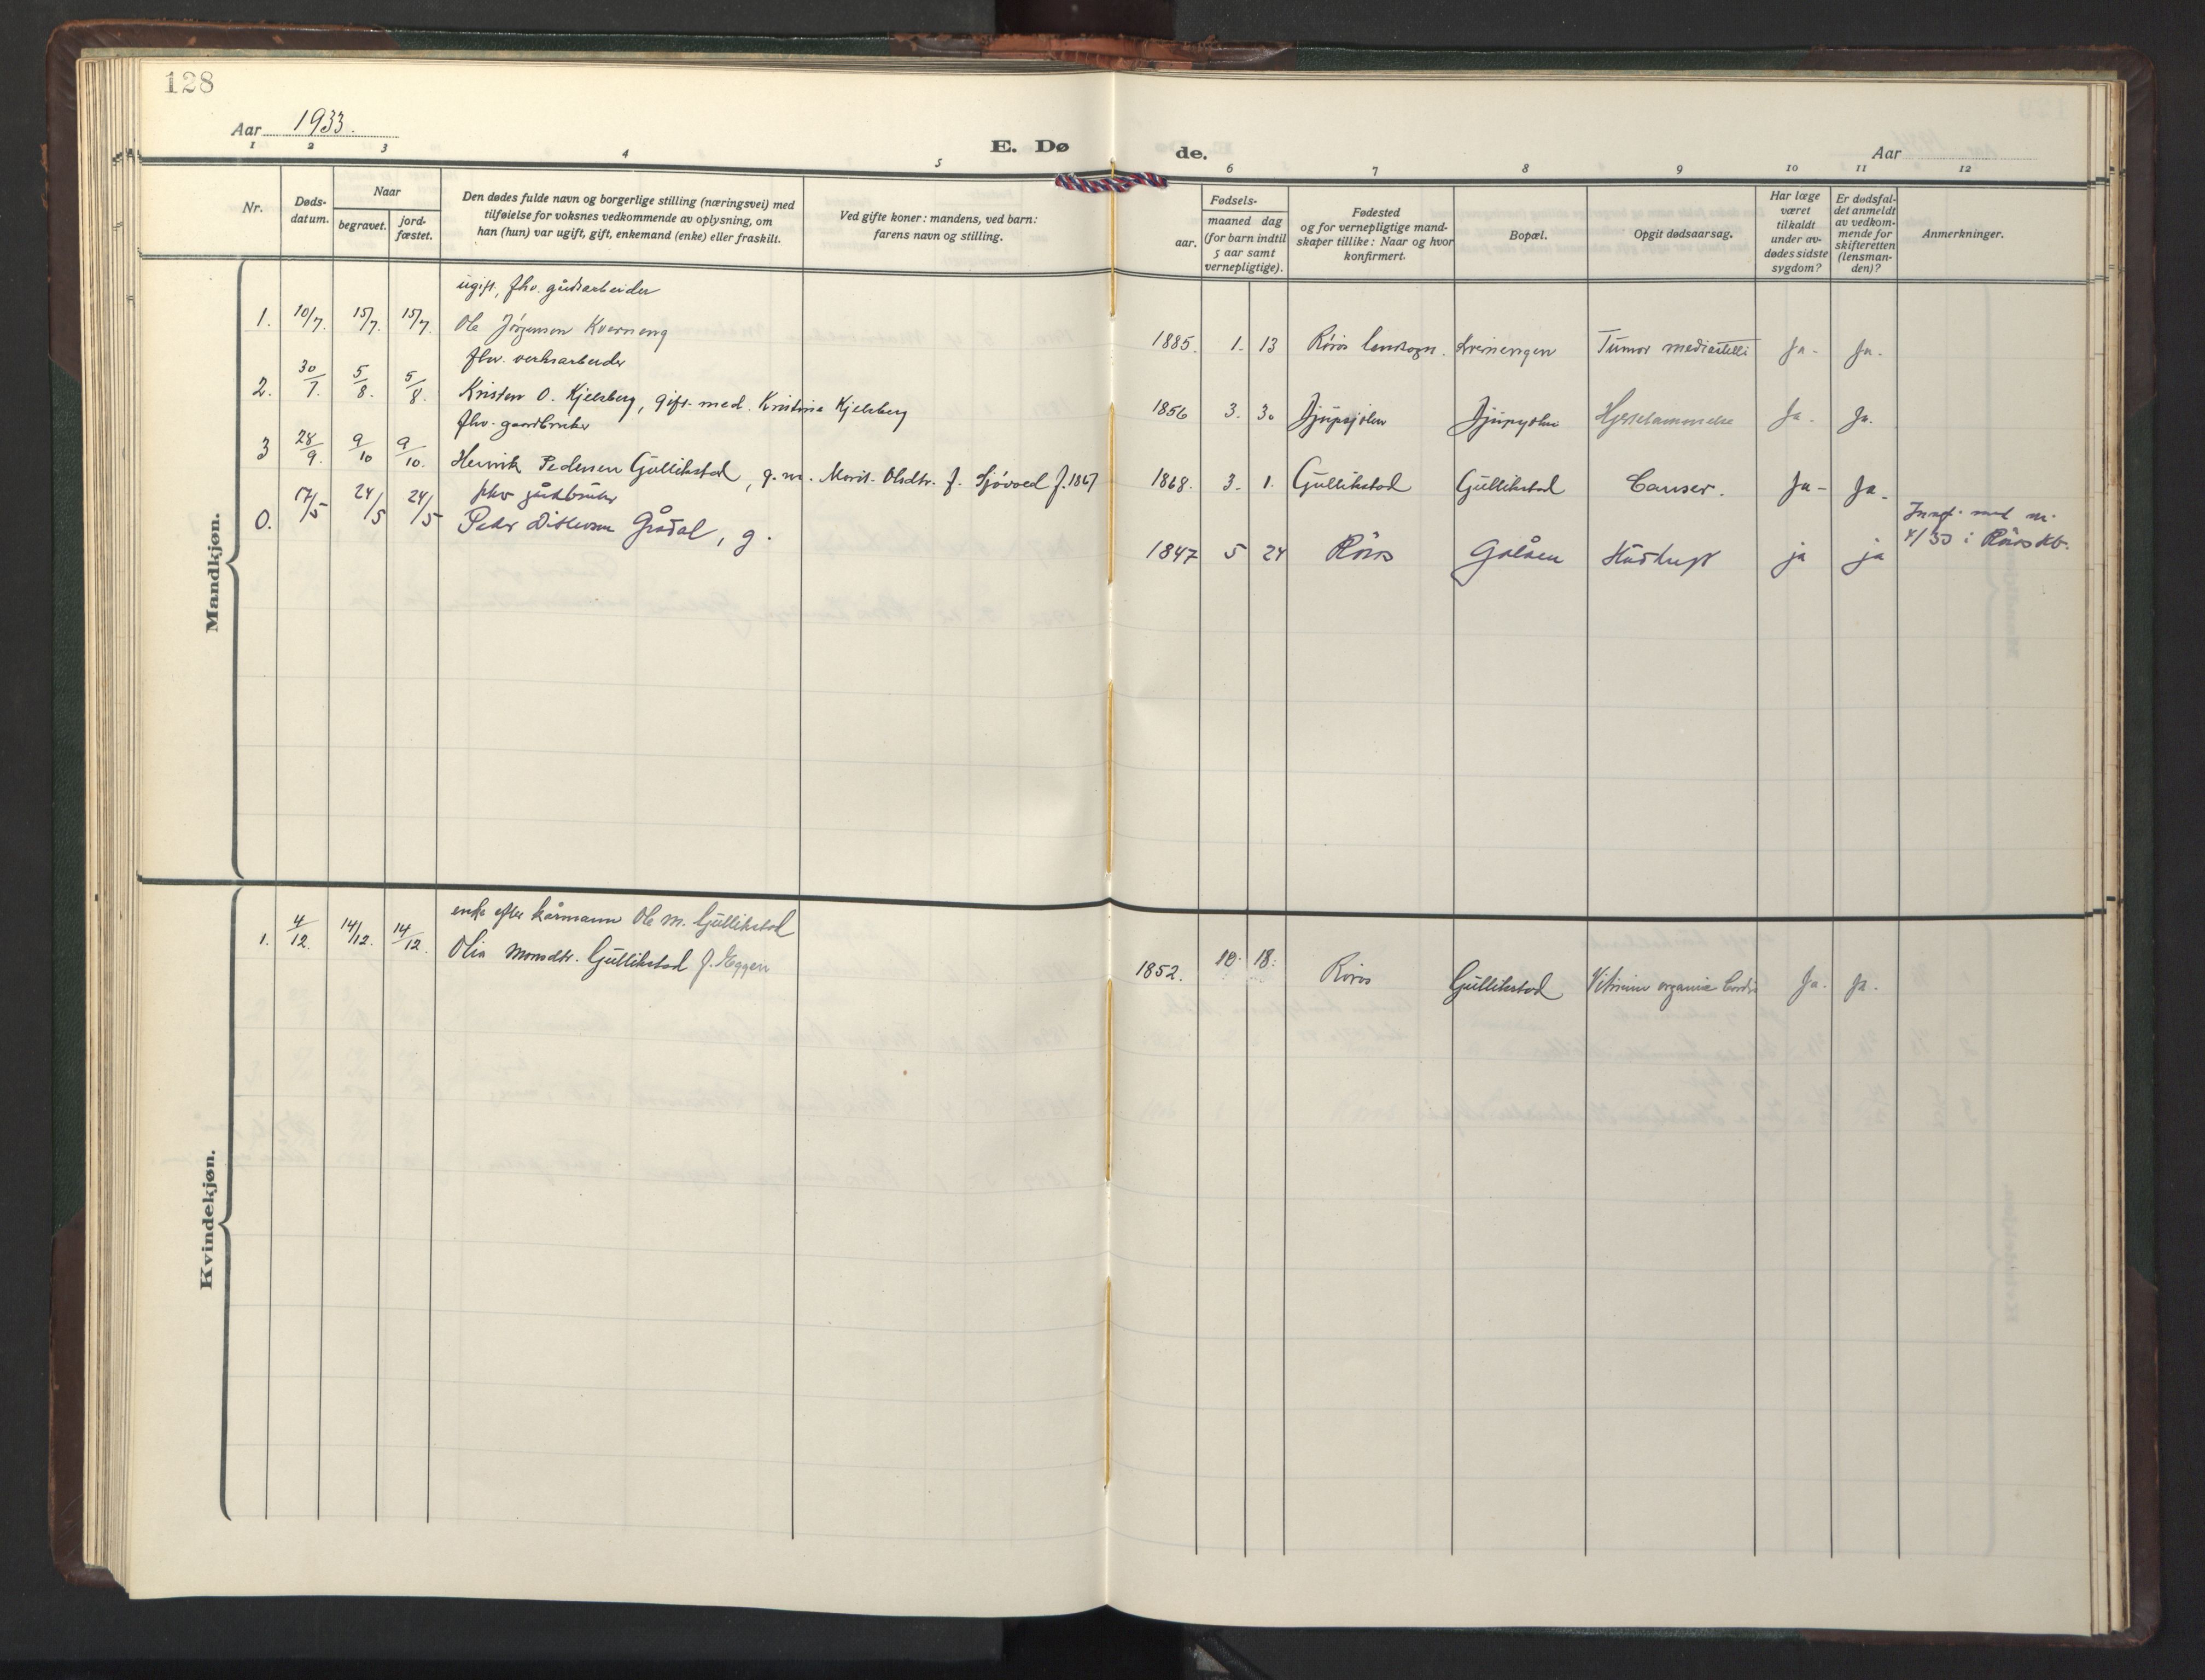 128
Aar 1933.
E. Dø
de.
Aar
1 2 3 4 5 6 7 8 9 10 11 12
Nr.
Døds-
datum.
Naar
begravet.
jord-
fæstet.
Den dødes fulde navn og borgerlige stilling (næringsvei) med
tilføielse for voksnes vedkommende av oplysning, om
han (hun) var ugift, gift, enkemand (enke) eller fraskilt.
Ved gifte koner: mandens, ved barn:
farens navn og stilling.
Fødsels-
aar.
maaned dag
(for barn indtil
5 aar samt
vernepligtige).
Fødested
og for vernepligtige mand-
skaper tillike: Naar og hvor
konfirmert.
Bopæl.
Opgit dødsaarsag.
Har læge
været
tilkaldt
under av-
dødes sidste
sygdom?
Er dødsfal-
det anmeldt
av vedkom-
mende for
skifteretten
(lensman-
den)?
Anmerkninger.
Mandkjøn.
ugift, fhv. gårdsarbeider
1. 10/7. 15/7. 15/7. Ole Jørgensen Kverneng 1885. 1. 13 Røros landsogn. Tumor mediastelli Ja. Ja.
fhv. verksarbeider
2. 30/7. 5/8. 5/8. Kristen O. Kjelsberg, gift med Kristine Kjelsberg 1856 3. 30 Djupsjølien Djupsjølien Hjertelammelse Ja. Ja.
fhv. gaardbruker
3 28/9. 9/10 9/10. Henrik Pedersen Gullikstad, g. m. Marit Olsdtr. f. Sjøvold f. 1867 1868. 3. 1. Gullikstad Gullikstad Canser. Ja Ja.
fhv gårdbruker
0. 17/5 24/5 24/5 Peder Ditlevsen Gråдal, g. 1847 5 24 Røros Galåen ja ja
Innf. med nr.
4/33 i Røros kb.
Kvindekjøn.
enke efter kårmann Ole M. Gullikstad
1. 4/12. 14/12. 14/12. Olia Monsdtr. Gullikstad f. Eggen 1852. 10. 18. Røros Gullikstad Vitium organic Cordis Ja. Ja.